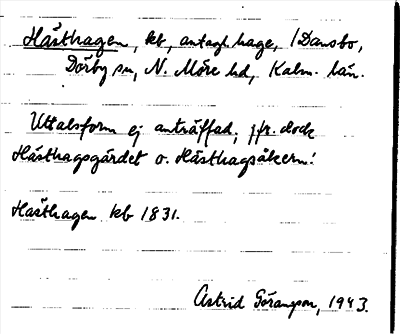 Hästhagen, kb, antagl. hage, /Dansbo,
Dörby sn, N. Möre hd, Kalm. län.
Uttalsform ej anträffad, jfr. dock
Hästhagsgärdet o. Hästhagsåkern!
Hästhagen kb 1831.
Astrid Göranson, 1943.